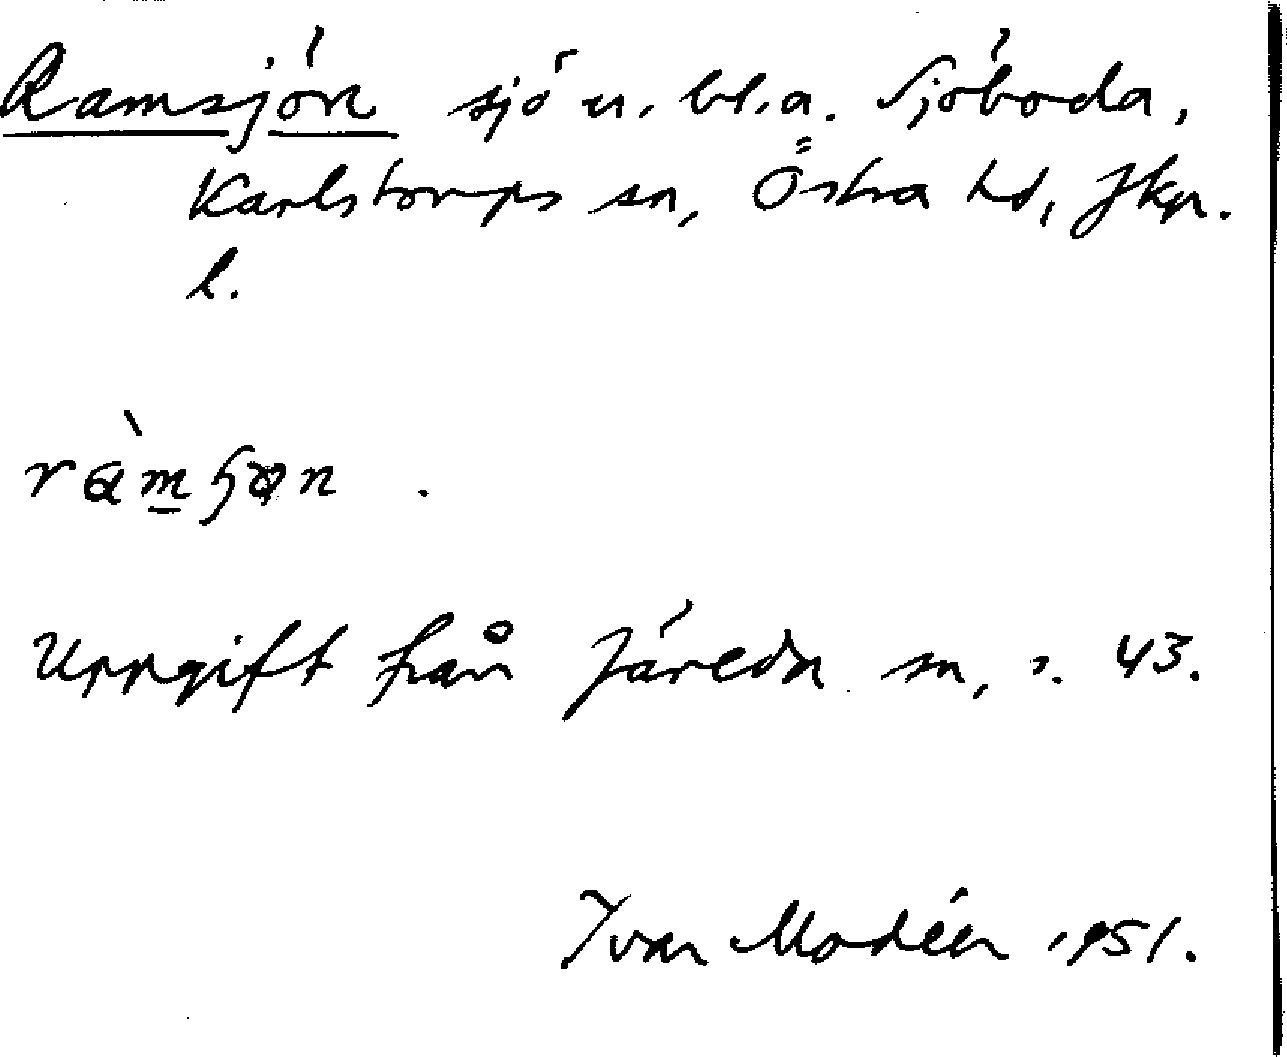 Ramsjön sjö u. bl.a. Sjöboda,
Karlstorps sn, Östra hd, Jkpr.
l.
Uppgift från Järeda sn, s. 43.
Ivar Modéer 1951.